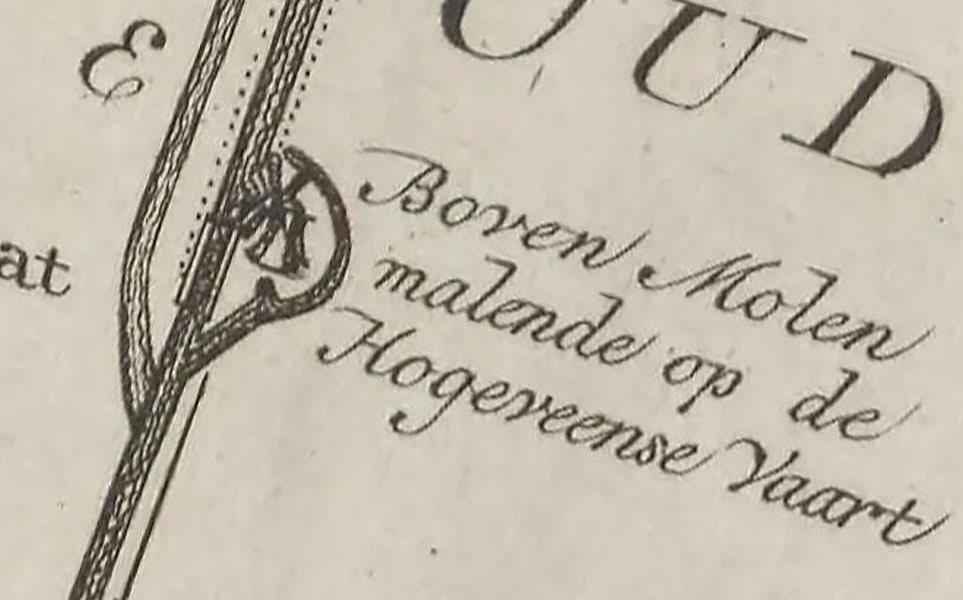 E
UUD
Boven Molen
at
malende op de
Hogereense Vaart